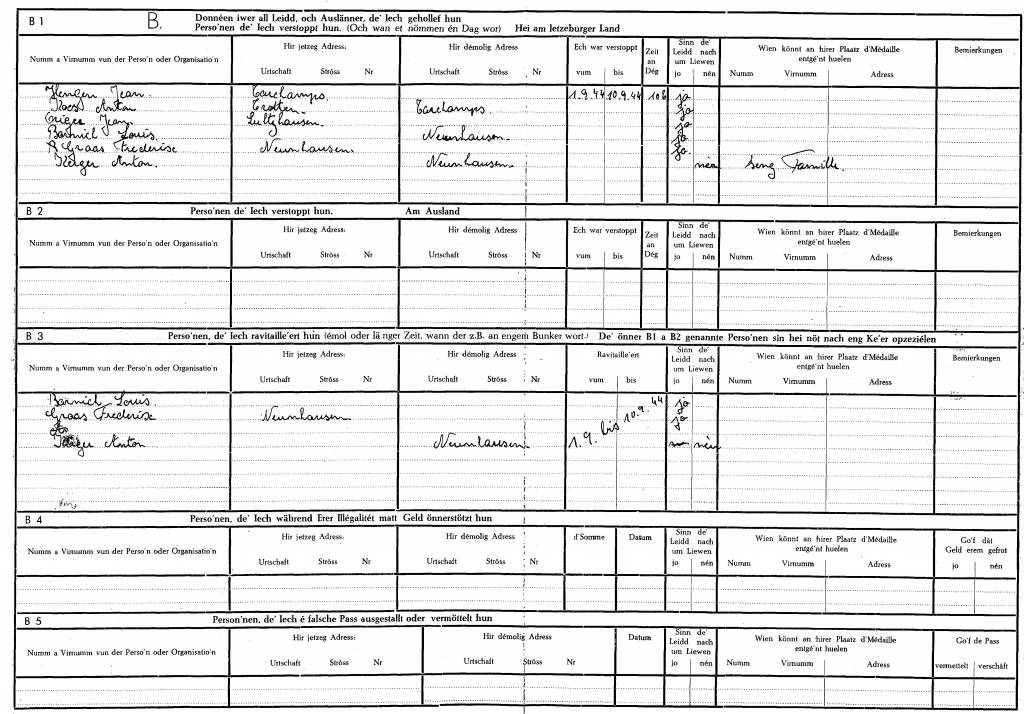 B 1 B. Donnéen iwer all Leidd, och Auslänner, de' Iech gehollef hun
Perso'nen de' Iech verstoppt hun. (Och wan et nömmen én Dag wor) Hei am letzeburger Land
Numm a Virnumm vun der Perso'n oder Organisatio'n Hir jetzeg Adress: Urtschaft Ströss Nr Hir démolig Adress Urtschaft Ströss Nr Ech war verstoppt vum bis Zeit an Dég Sinn de' Leidd nach um Liewen jo nén Wien könnt an hirer Plaatz d'Médaille entgé'nt huelen Numm Virnumm Adress Bemierkungen
Hengen Jean. Tarchamps. 1.9.44 10.9.44 jo
Anton Tarchamps. jo
Jean. Lultzhausen. jo
Barnich Louis. Neunhausen. jo
Graas Frederise Neunhausen. jo
Anton. Neunhausen. nèn seng Famille.
B 2 Perso'nen de' Iech verstoppt hun. Am Ausland
Numm a Virnumm vun der Perso'n oder Organisatio'n Hir jetzeg Adress: Urtschaft Ströss Nr Hir démolig Adress Urtschaft Ströss Nr Ech war verstoppt vum bis Zeit an Dég Sinn de' Leidd nach um Liewen jo nén Wien könnt an hirer Plaatz d'Médaille entgé'nt huelen Numm Virnumm Adress Bemierkungen
B 3 Perso'nen, de' Iech ravitaille'ert hun (émol oder lä nger Zeit, wann der z.B. an engem Bunker wort.) De' önner B1 a B2 genannte Perso'nen sin hei nöt nach eng Ke'er opzeziélen
Numm a Virnumm vun der Perso'n oder Organisatio'n Hir jetzeg Adress: Urtschaft Ströss Nr Hir démolig Adress Urtschaft Ströss Nr Ravitaille'ert vum bis Sinn de' Leidd nach um Liewen jo nén Wien könnt an hirer Plaatz d'Médaille entgé'nt huelen Numm Virnumm Adress Bemierkungen
Barnich Louis. jo
Graas Frederise Neunhausen 1.9. bis 10.9.44 jo
Anton Neunhausen. nèn
B 4 Perso'nen, de' Iech während Erer Illégalitét matt Geld önnerstötzt hun
Numm a Virnumm vun der Perso'n oder Organisatio'n Hir jetzeg Adress: Urtschaft Ströss Nr Hir démolig Adress Urtschaft Ströss Nr d'Somme Datum Sinn de' Leidd nach um Liewen jo nén Wien könnt an hirer Plaatz d'Médaille entgé'nt huelen Numm Virnumm Adress Go'f dât Geld erem gefrot jo nén
B 5 Person'nen, de' Iech é falsche Pass ausgestallt oder vermöttelt hun
Numm a Virnumm vun der Perso'n oder Organisatio'n Hir jetzeg Adress: Urtschaft Ströss Nr Hir démolig Adress Urtschaft Ströss Nr Datum Sinn de' Leidd nach um Liewen jo nén Wien könnt an hirer Plaatz d'Médaille entgé'nt huelen Numm Virnumm Adress Go'f de Pass vermettelt verschäft